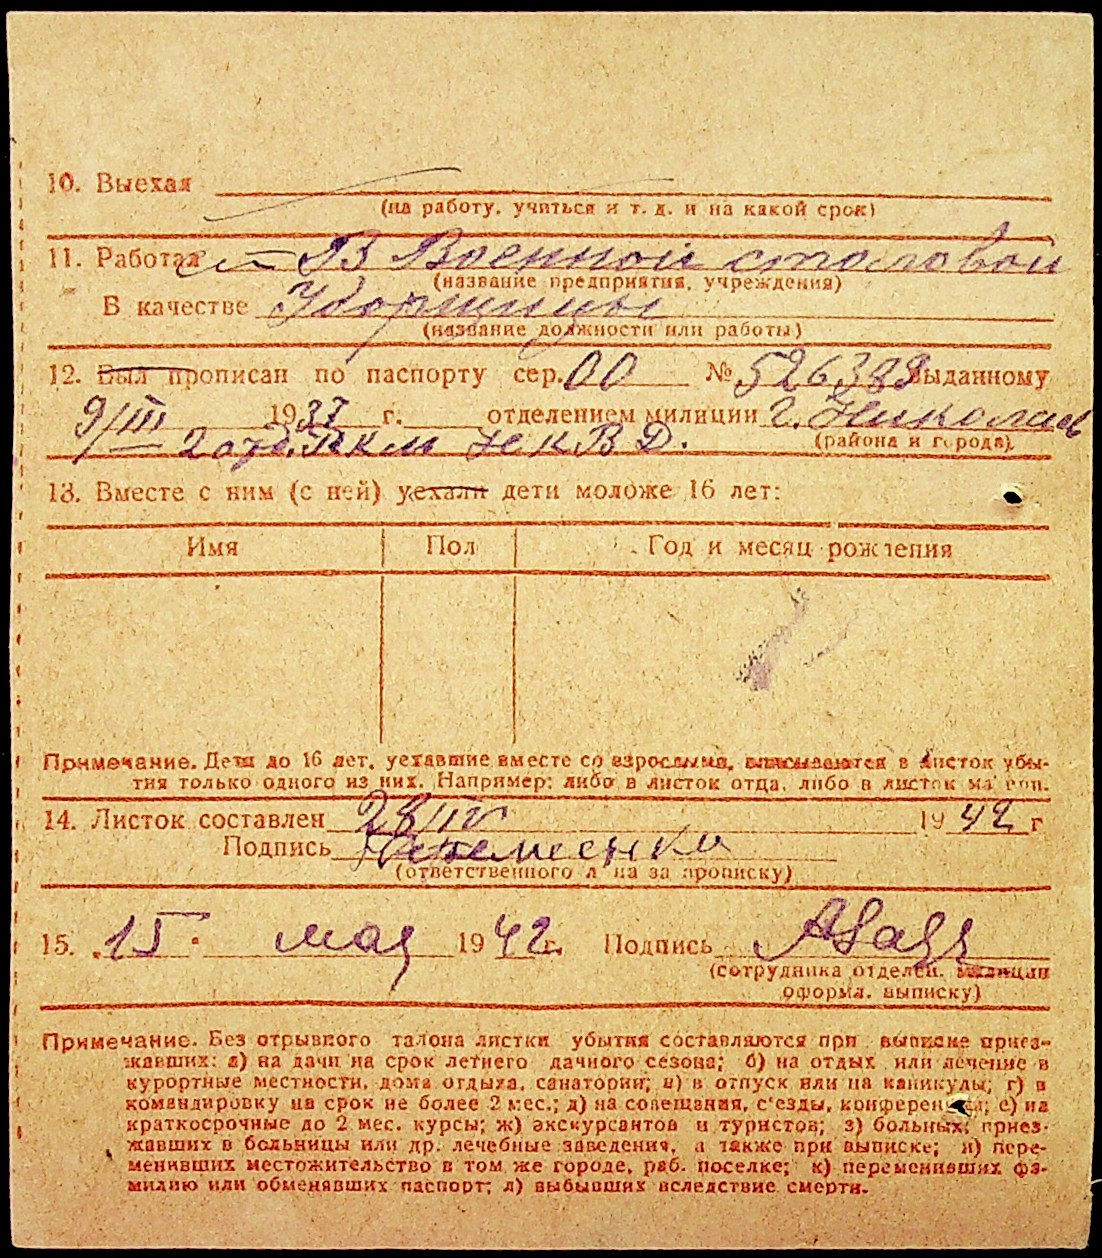 10. Выехал
(на работу, учиться и т. д. и на какой срок)
11. Работал В Военной столовой
(название предприятия, учреждения)
В качестве Уборщицы
(название должности или работы)
12. Был прописан по паспорту сер. ОО № 526389 выданному
9/III 1937 г. отделением милиции г. Николаев
2 отд. РКМ НКВД. (района и города).
13. Вместе с ним (с ней) уехали дети моложе 16 лет:
Имя Пол Год и месяц рождения
Примечание. Дети до 16 лет, уехавшие вместе со взрослыми, вписываются в листок убы-
тия только одного из них. Например: либо в листок отца, либо в листок матери.
14. Листок составлен 28/IV 1942 г
Подпись
(ответственного лица за прописку)
15. 15 мая 1942 г. Подпись
(сотрудника отделен. милиции
оформл. выписку)
Примечание. Без отрывного талона листки убытия составляются при выписке приез-
жавших: а) на дачи на срок летнего дачного сезона; б) на отдых или лечение в
курортные местности, дома отдыха, санатории; в) в отпуск или на каникулы; г) в
командировку на срок не более 2 мес.; д) на совещания, с'езды, конференции; е) на
краткосрочные до 2 мес. курсы; ж) экскурсантов и туристов; з) больных, приез-
жавших в больницы или др. лечебные заведения, а также при выписке; и) пере-
менивших местожительство в том же городе, раб. поселке; к) переменивших фа-
милию или обменявших паспорт; л) выбывших вследствие смерти.